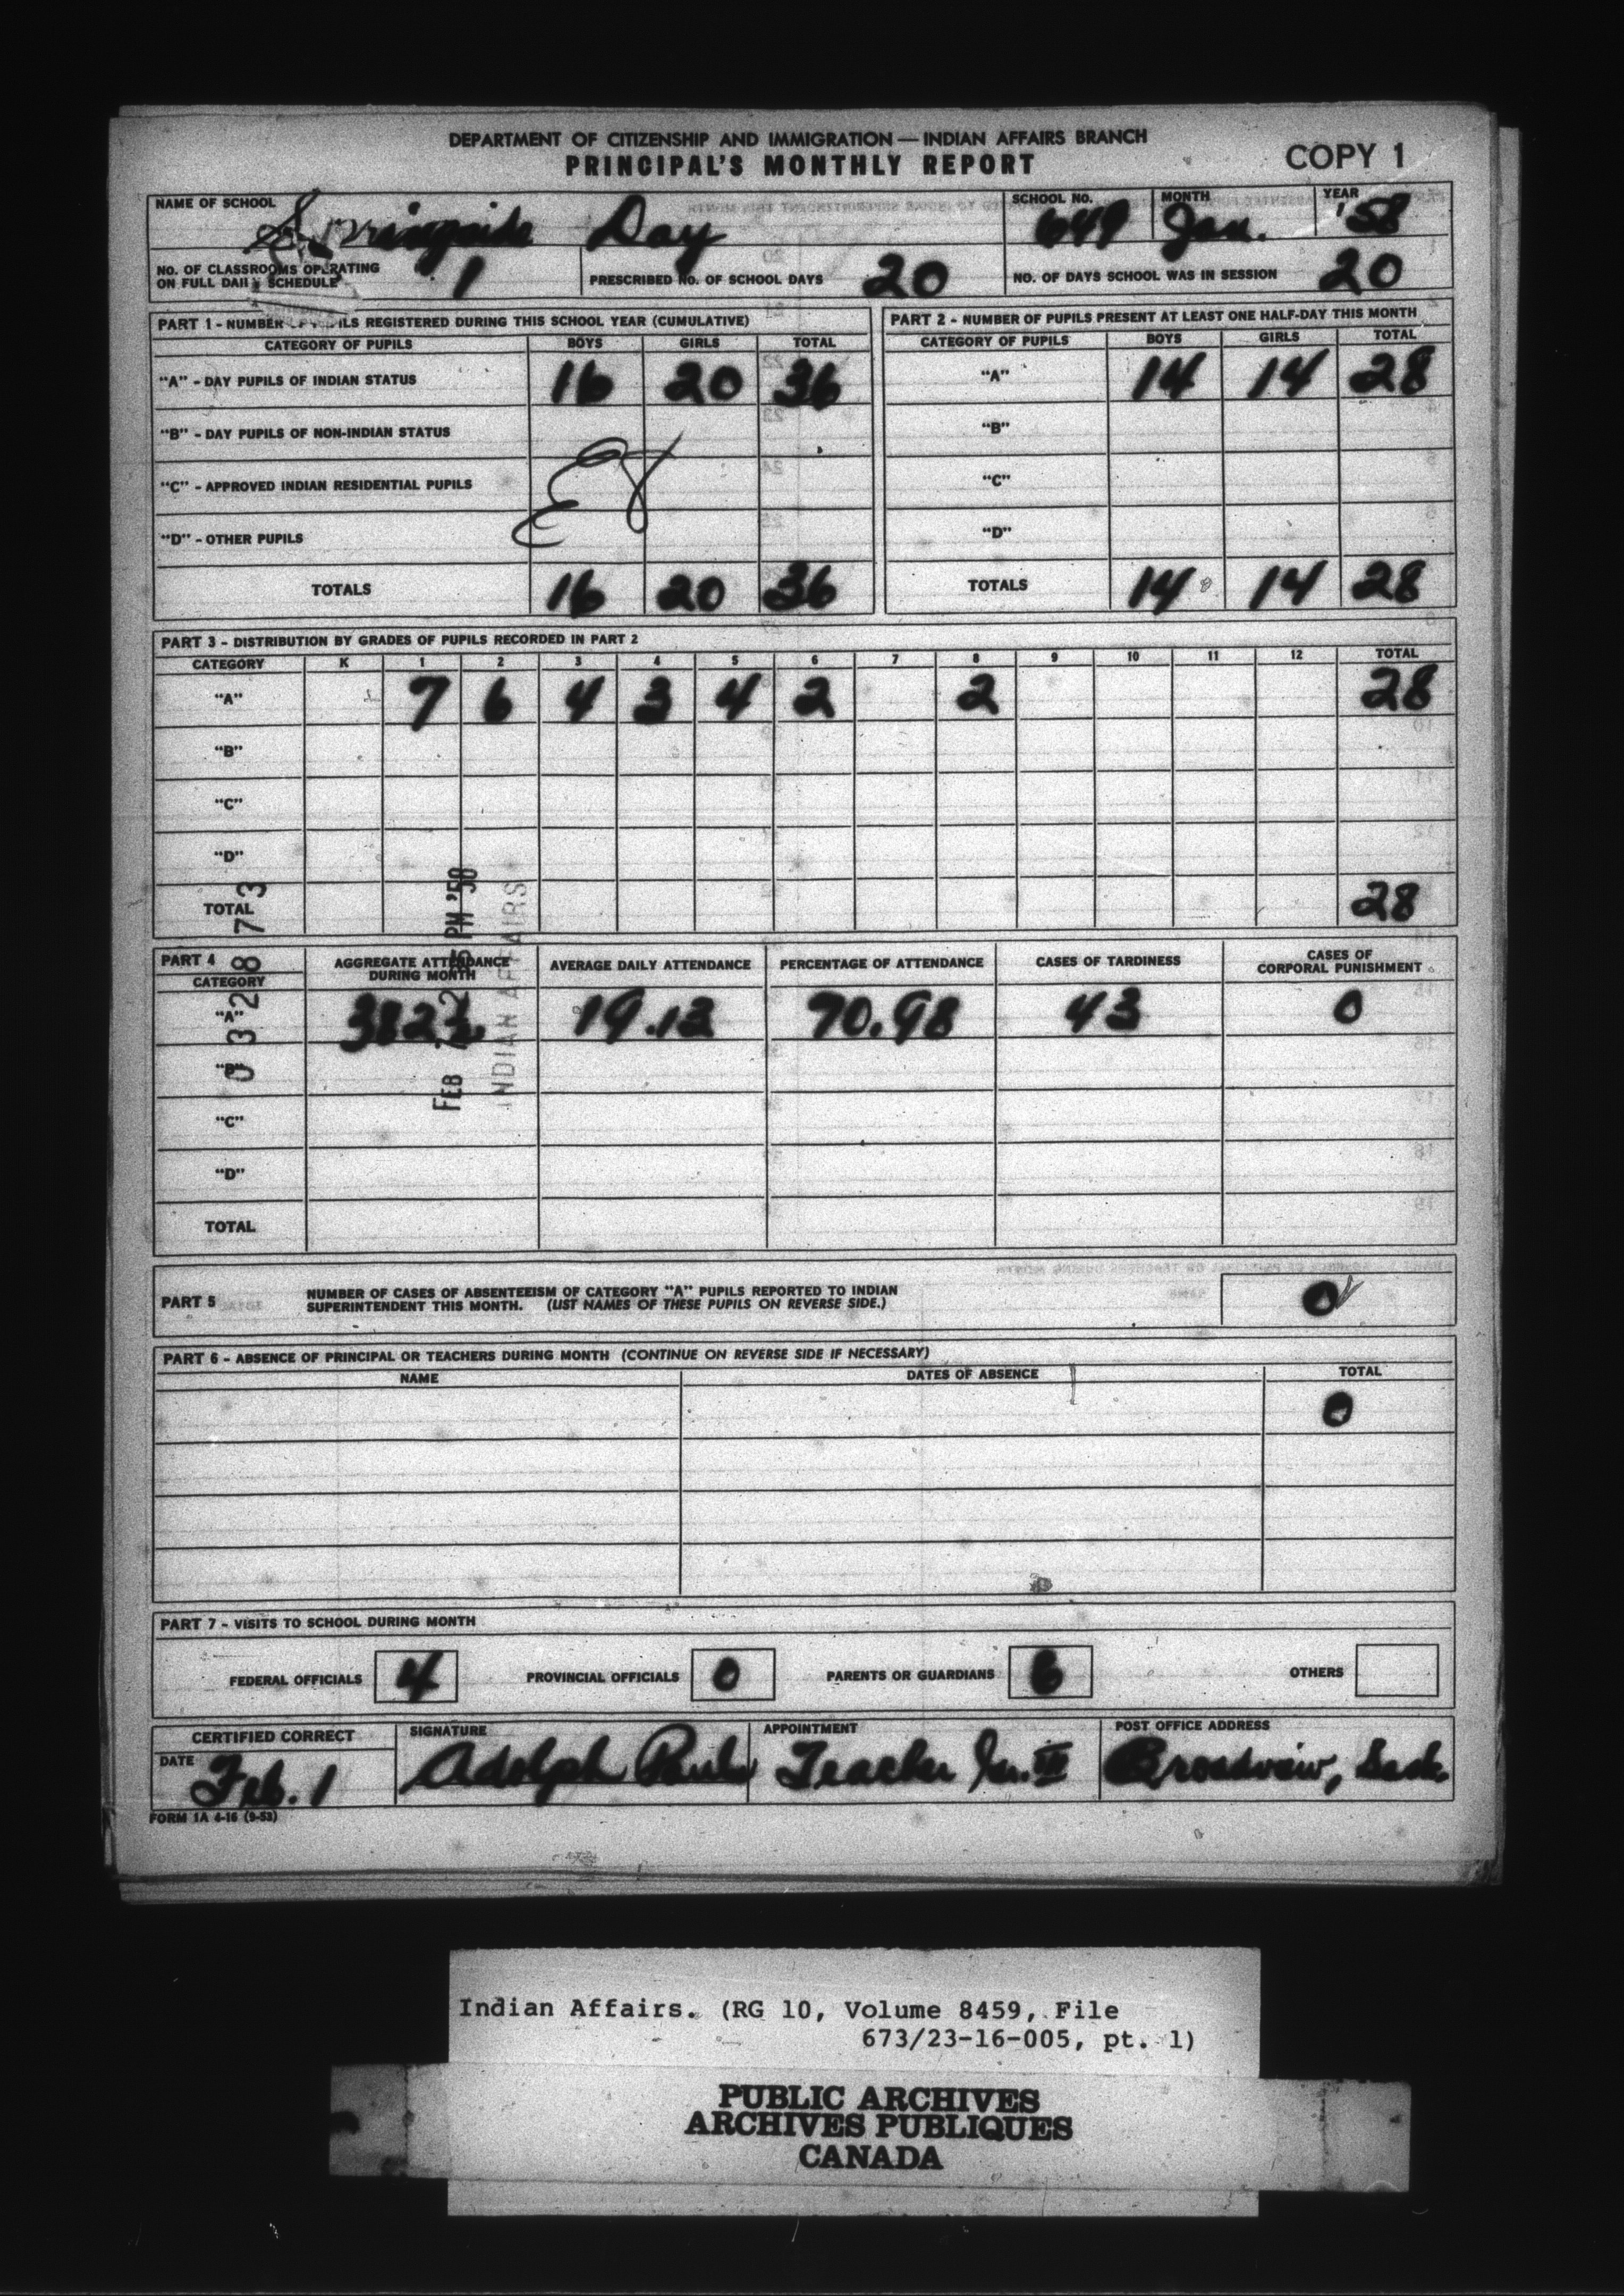 DEPARTMENT OF CITIZENSHIP AND IMMIGRATION — INDIAN AFFAIRS BRANCH
PRINCIPAL'S MONTHLY REPORT
COPY 1
NAME OF SCHOOL Springside Day SCHOOL NO. 649 MONTH Jan. YEAR '58
NO. OF CLASSROOMS OPERATING ON FULL DAILY SCHEDULE 1 PRESCRIBED NO. OF SCHOOL DAYS 20 NO. OF DAYS SCHOOL WAS IN SESSION 20
PART 1 - NUMBER OF PUPILS REGISTERED DURING THIS SCHOOL YEAR (CUMULATIVE)
CATEGORY OF PUPILS BOYS GIRLS TOTAL
"A" - DAY PUPILS OF INDIAN STATUS 16 20 36
"B" - DAY PUPILS OF NON-INDIAN STATUS
"C" - APPROVED INDIAN RESIDENTIAL PUPILS
"D" - OTHER PUPILS
TOTALS 16 20 36
PART 2 - NUMBER OF PUPILS PRESENT AT LEAST ONE HALF-DAY THIS MONTH
CATEGORY OF PUPILS BOYS GIRLS TOTAL
"A" 14 14 28
"B"
"C"
"D"
TOTALS 14 14 28
PART 3 - DISTRIBUTION BY GRADES OF PUPILS RECORDED IN PART 2
CATEGORY K 1 2 3 4 5 6 7 8 9 10 11 12 TOTAL
"A" 7 6 4 3 4 2 2 28
"B"
"C"
"D"
TOTAL 28
PART 4
CATEGORY AGGREGATE ATTENDANCE DURING MONTH AVERAGE DAILY ATTENDANCE PERCENTAGE OF ATTENDANCE CASES OF TARDINESS CASES OF CORPORAL PUNISHMENT
"A" 19.12 70.98 43 0
"B"
"C"
"D"
TOTAL
032873
FEB PM '58
INDIAN AFFAIRS
PART 5 NUMBER OF CASES OF ABSENTEEISM OF CATEGORY "A" PUPILS REPORTED TO INDIAN
SUPERINTENDENT THIS MONTH. (LIST NAMES OF THESE PUPILS ON REVERSE SIDE.) 0
PART 6 - ABSENCE OF PRINCIPAL OR TEACHERS DURING MONTH (CONTINUE ON REVERSE SIDE IF NECESSARY)
NAME DATES OF ABSENCE TOTAL
0
PART 7 - VISITS TO SCHOOL DURING MONTH
FEDERAL OFFICIALS 4 PROVINCIAL OFFICIALS 0 PARENTS OR GUARDIANS 6 OTHERS
CERTIFIED CORRECT SIGNATURE APPOINTMENT POST OFFICE ADDRESS
DATE Feb. 1 Adolph Teacher Broadview, Sask.
FORM 1A 4-16 (9-53)
Indian Affairs. (RG 10, Volume 8459, File
673/23-16-005, pt. 1)
PUBLIC ARCHIVES
ARCHIVES PUBLIQUES
CANADA